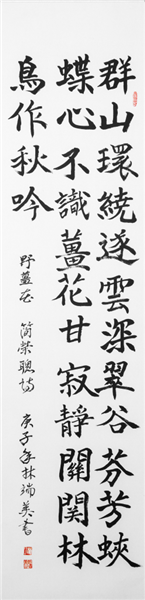 群山環繞遂雲深翠谷芬芳蛺
蝶心不識薑花甘寂靜關関林
鳥作秋吟
野薑花 简榮聰詩 庚子年林瑞美書